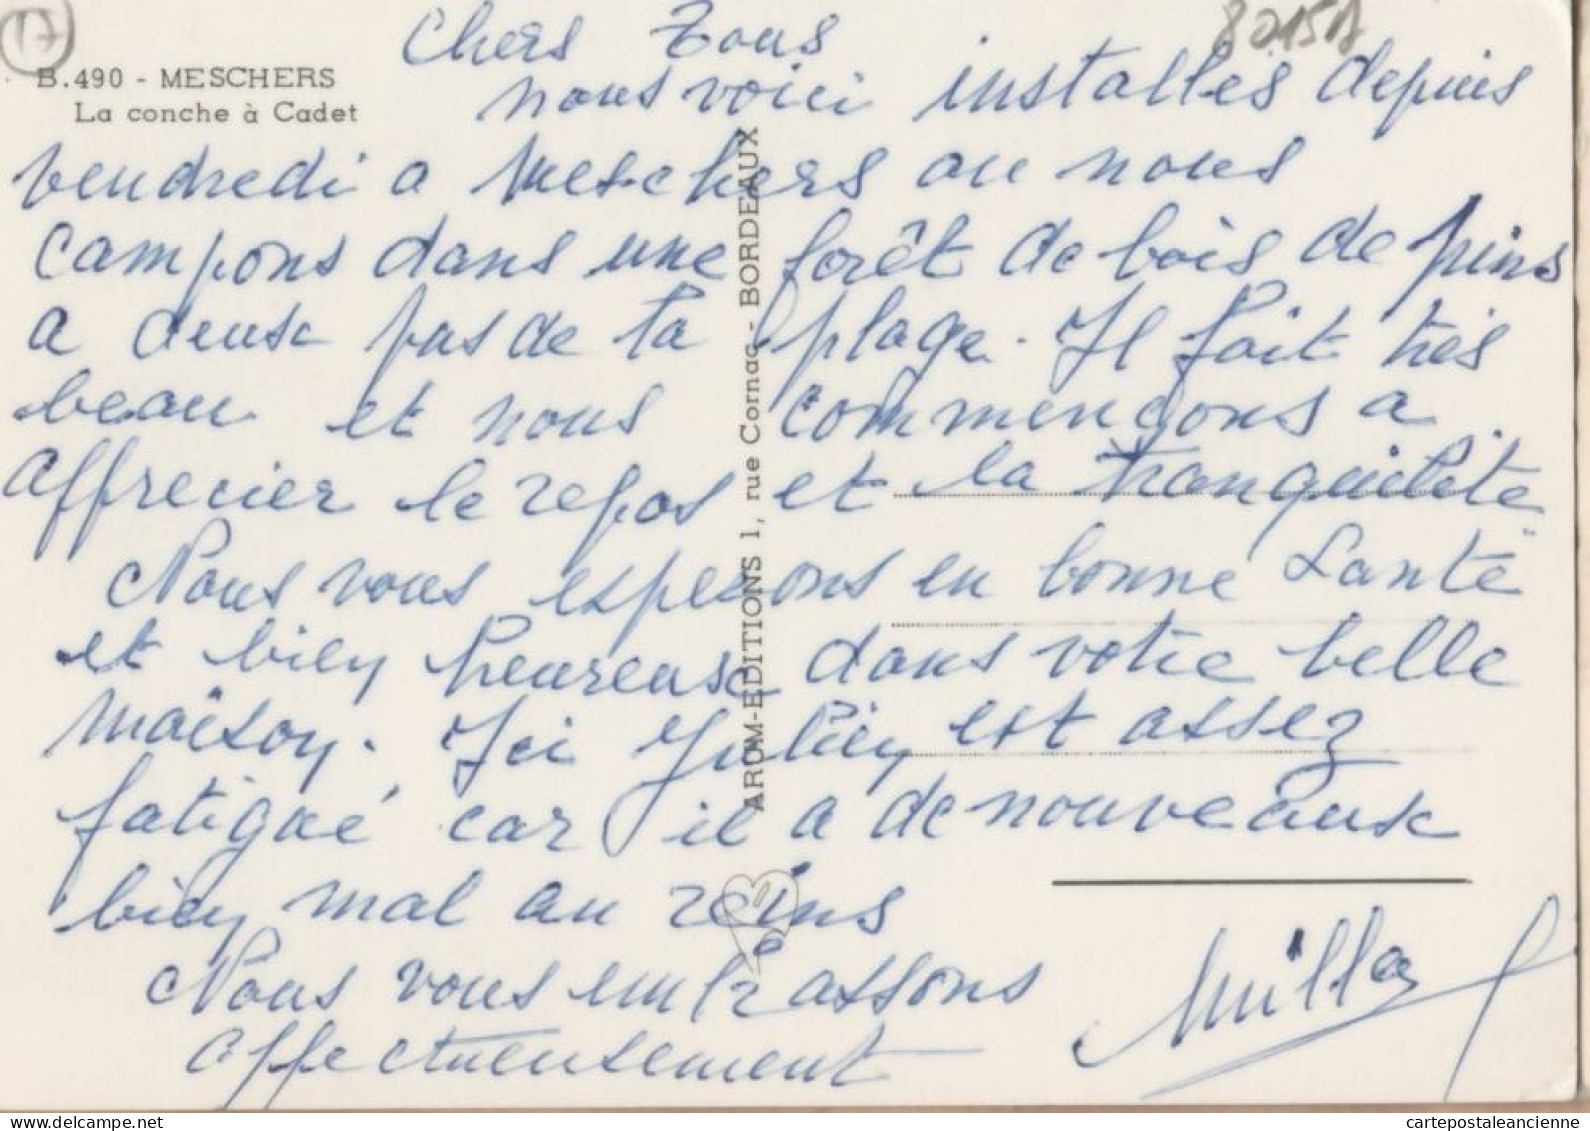 17
82151A
B.490 - MESCHERS
La conche à Cadet
Chers Tous
nous voici installés depuis
vendredi a Meschers ou nous
campons dans une forêt de bois de pins
a deux pas de la plage. Il fait très
beau et nous commençons a
apprecier le repos et la tranquilité
Nous vous esperons en bonne Santé
et bien heureuse dans votre belle
maison. Ici Julien est assez
fatigué car il a de nouveaux
bien mal au reins
Nous vous embrassons
affectueusement
ARUM-EDITIONS 1, rue Cornac - BORDEAUX
cartepostaleancienne